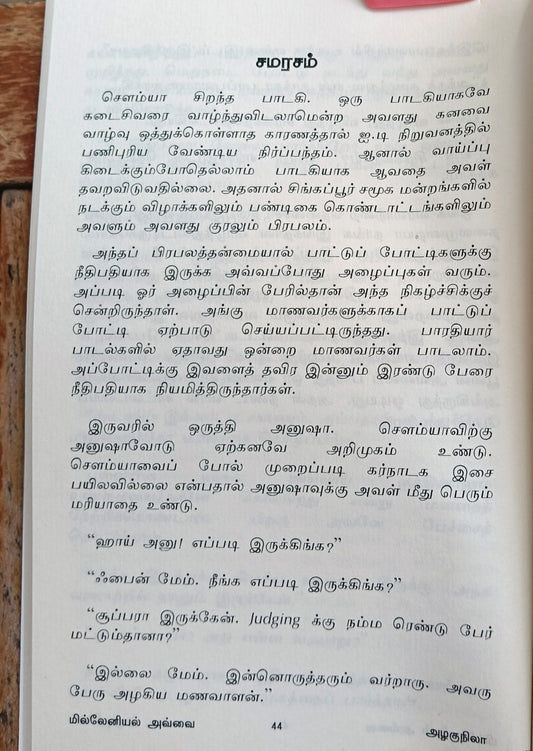 சமரசம்
சௌம்யா சிறந்த பாடகி. ஒரு பாடகியாகவே
கடைசிவரை வாழ்ந்துவிடலாமென்ற அவளது கனவை
வாழ்வு ஒத்துக்கொள்ளாத காரணத்தால் ஐ.டி நிறுவனத்தில்
பணிபுரிய வேண்டிய நிர்ப்பந்தம். ஆனால் வாய்ப்பு
கிடைக்கும்போதெல்லாம் பாடகியாக ஆவதை அவள்
தவறவிடுவதில்லை. அதனால் சிங்கப்பூர் சமூக மன்றங்களில்
நடக்கும் விழாக்களிலும் பண்டிகை கொண்டாட்டங்களிலும்
அவளும் அவளது குரலும் பிரபலம்.
அந்தப் பிரபலத்தன்மையால் பாட்டுப் போட்டிகளுக்கு
நீதிபதியாக இருக்க அவ்வப்போது அழைப்புகள் வரும்.
அப்படி ஓர் அழைப்பின் பேரில்தான் அந்த நிகழ்ச்சிக்குச்
சென்றிருந்தாள். அங்கு மாணவர்களுக்காகப் பாட்டுப்
போட்டி ஏற்பாடு செய்யப்பட்டிருந்தது. பாரதியார்
பாடல்களில் ஏதாவது ஒன்றை மாணவர்கள் பாடலாம்.
அப்போட்டிக்கு இவளைத் தவிர இன்னும் இரண்டு பேரை
நீதிபதியாக நியமித்திருந்தார்கள்.
இருவரில் ஒருத்தி அனுஷா. சௌம்யாவிற்கு
அனுஷாவோடு ஏற்கனவே அறிமுகம் உண்டு.
சௌம்யாவைப் போல் முறைப்படி கர்நாடக இசை
பயிலவில்லை என்பதால் அனுஷாவுக்கு அவள் மீது பெரும்
மரியாதை உண்டு.
“ஹாய் அனு! எப்படி இருக்கிங்க?”
“ஃபைன் மேம். நீங்க எப்படி இருக்கிங்க?”
“சூப்பரா இருக்கேன். Judging க்கு நம்ம ரெண்டு பேர்
மட்டும்தானா?”
“இல்லை மேம். இன்னொருத்தரும் வர்றாரு. அவரு
பேரு அழகிய மணவாளன்.”
மில்லேனியல் அவ்வை 44 அழகுநிலா